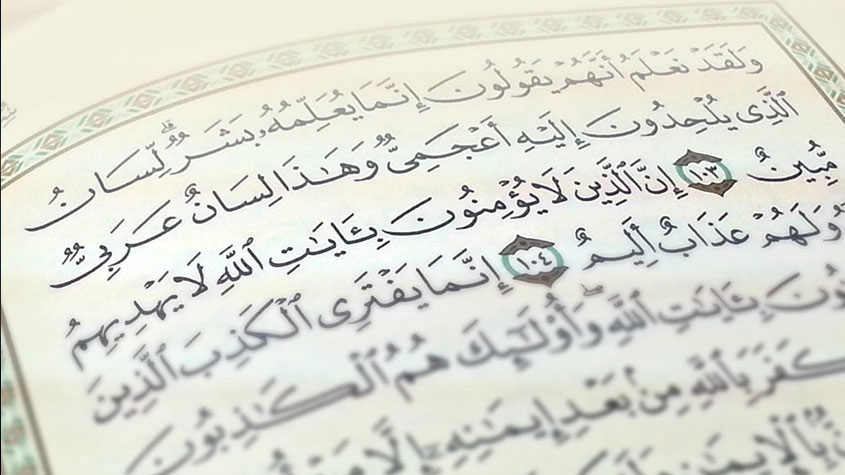 وَلَقَدْ نَعْلَمُ أَنَّهُمْ يَقُولُونَ إِنَّمَا يُعَلِّمُهُۥ بَشَرٌ ۗ لِّسَانُ
ٱلَّذِى يُلْحِدُونَ إِلَيْهِ أَعْجَمِىٌّ وَهَٰذَا لِسَانٌ عَرَبِىٌّ
مُّبِينٌ ١٠٣ إِنَّ ٱلَّذِينَ لَا يُؤْمِنُونَ بِـَٔايَٰتِ ٱللَّهِ لَا يَهْدِيهِمُ
وَلَهُمْ عَذَابٌ أَلِيمٌ ١٠٤ إِنَّمَا يَفْتَرِى ٱلْكَذِبَ ٱلَّذِينَ
بِـَٔايَٰتِ ٱللَّهِ ۖ وَأُو۟لَٰٓئِكَ هُمُ ٱلْكَٰذِبُونَ
كَفَرَ بِٱللَّهِ مِنۢ بَعْدِ إِيمَٰنِهِۦٓ إِلَّا مَنْ